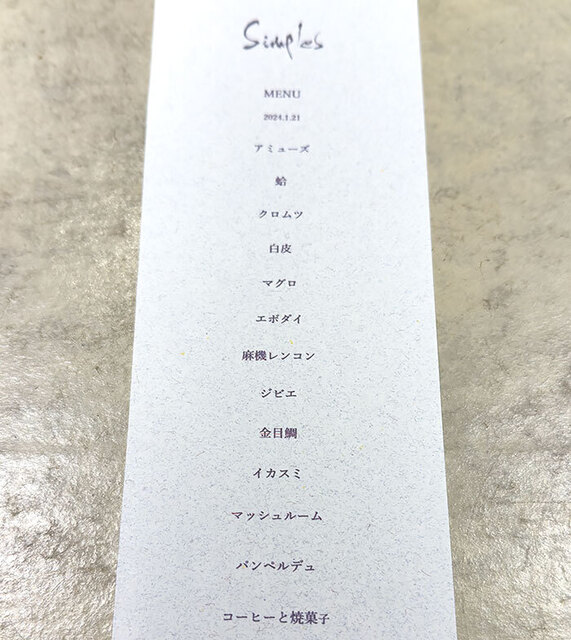 Simples
MENU
2024.1.21
アミューズ
蛤
クロムツ
白皮
マグロ
エボダイ
麻機レンコン
ジビエ
金目鯛
イカスミ
マッシュルーム
パンペルデュ
コーヒーと焼菓子